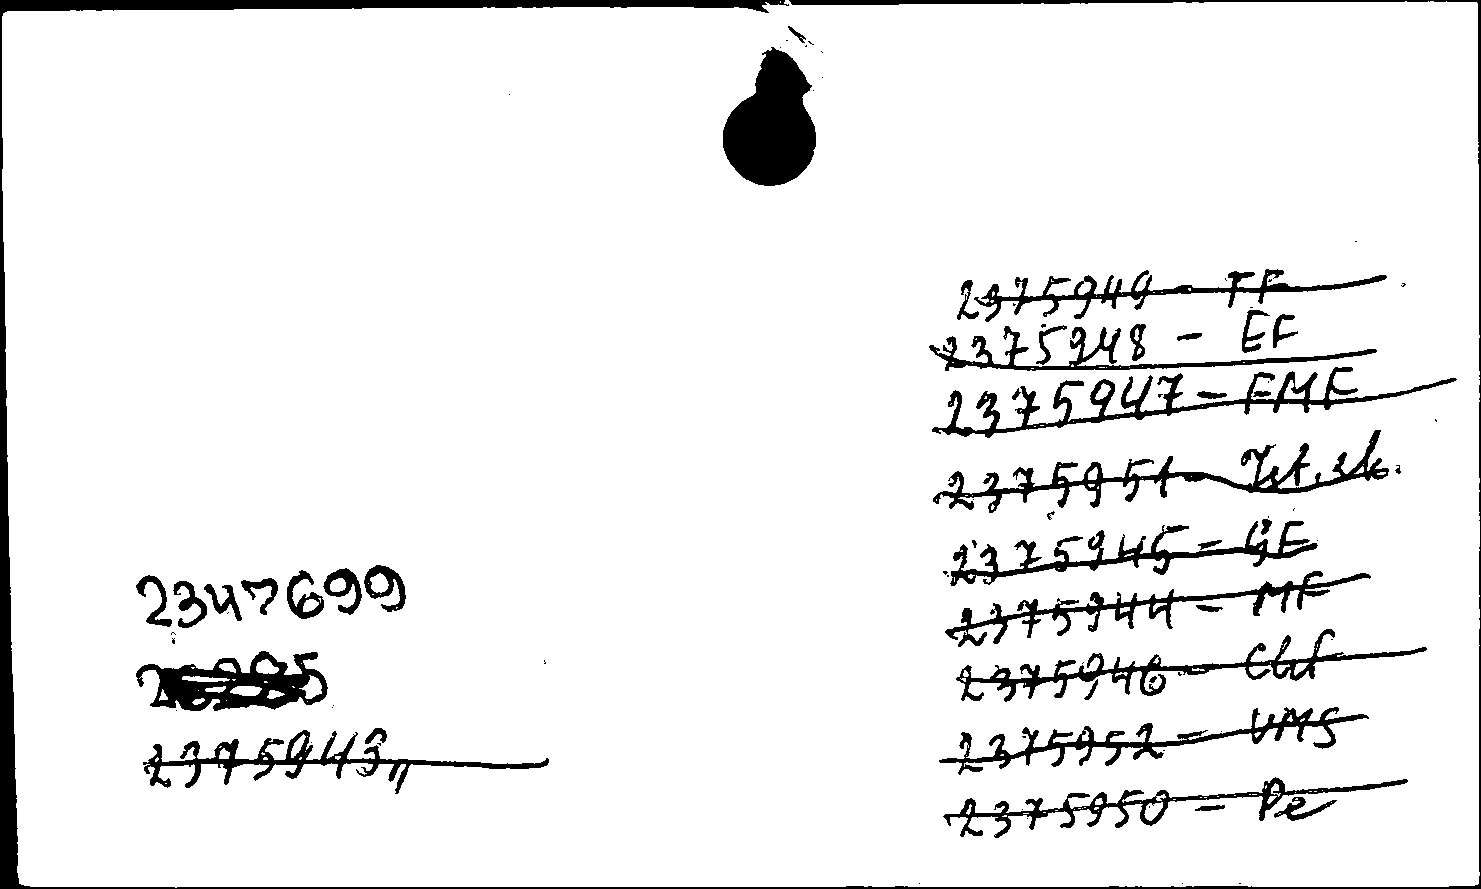 2347699
2375943 "
2375949 - FF
2375948 - EF
2375947 - FMF
2375951 -
2375945 - GF
2375944 - MF
2375946 -
2375952 - VMS
2375950 - Pe